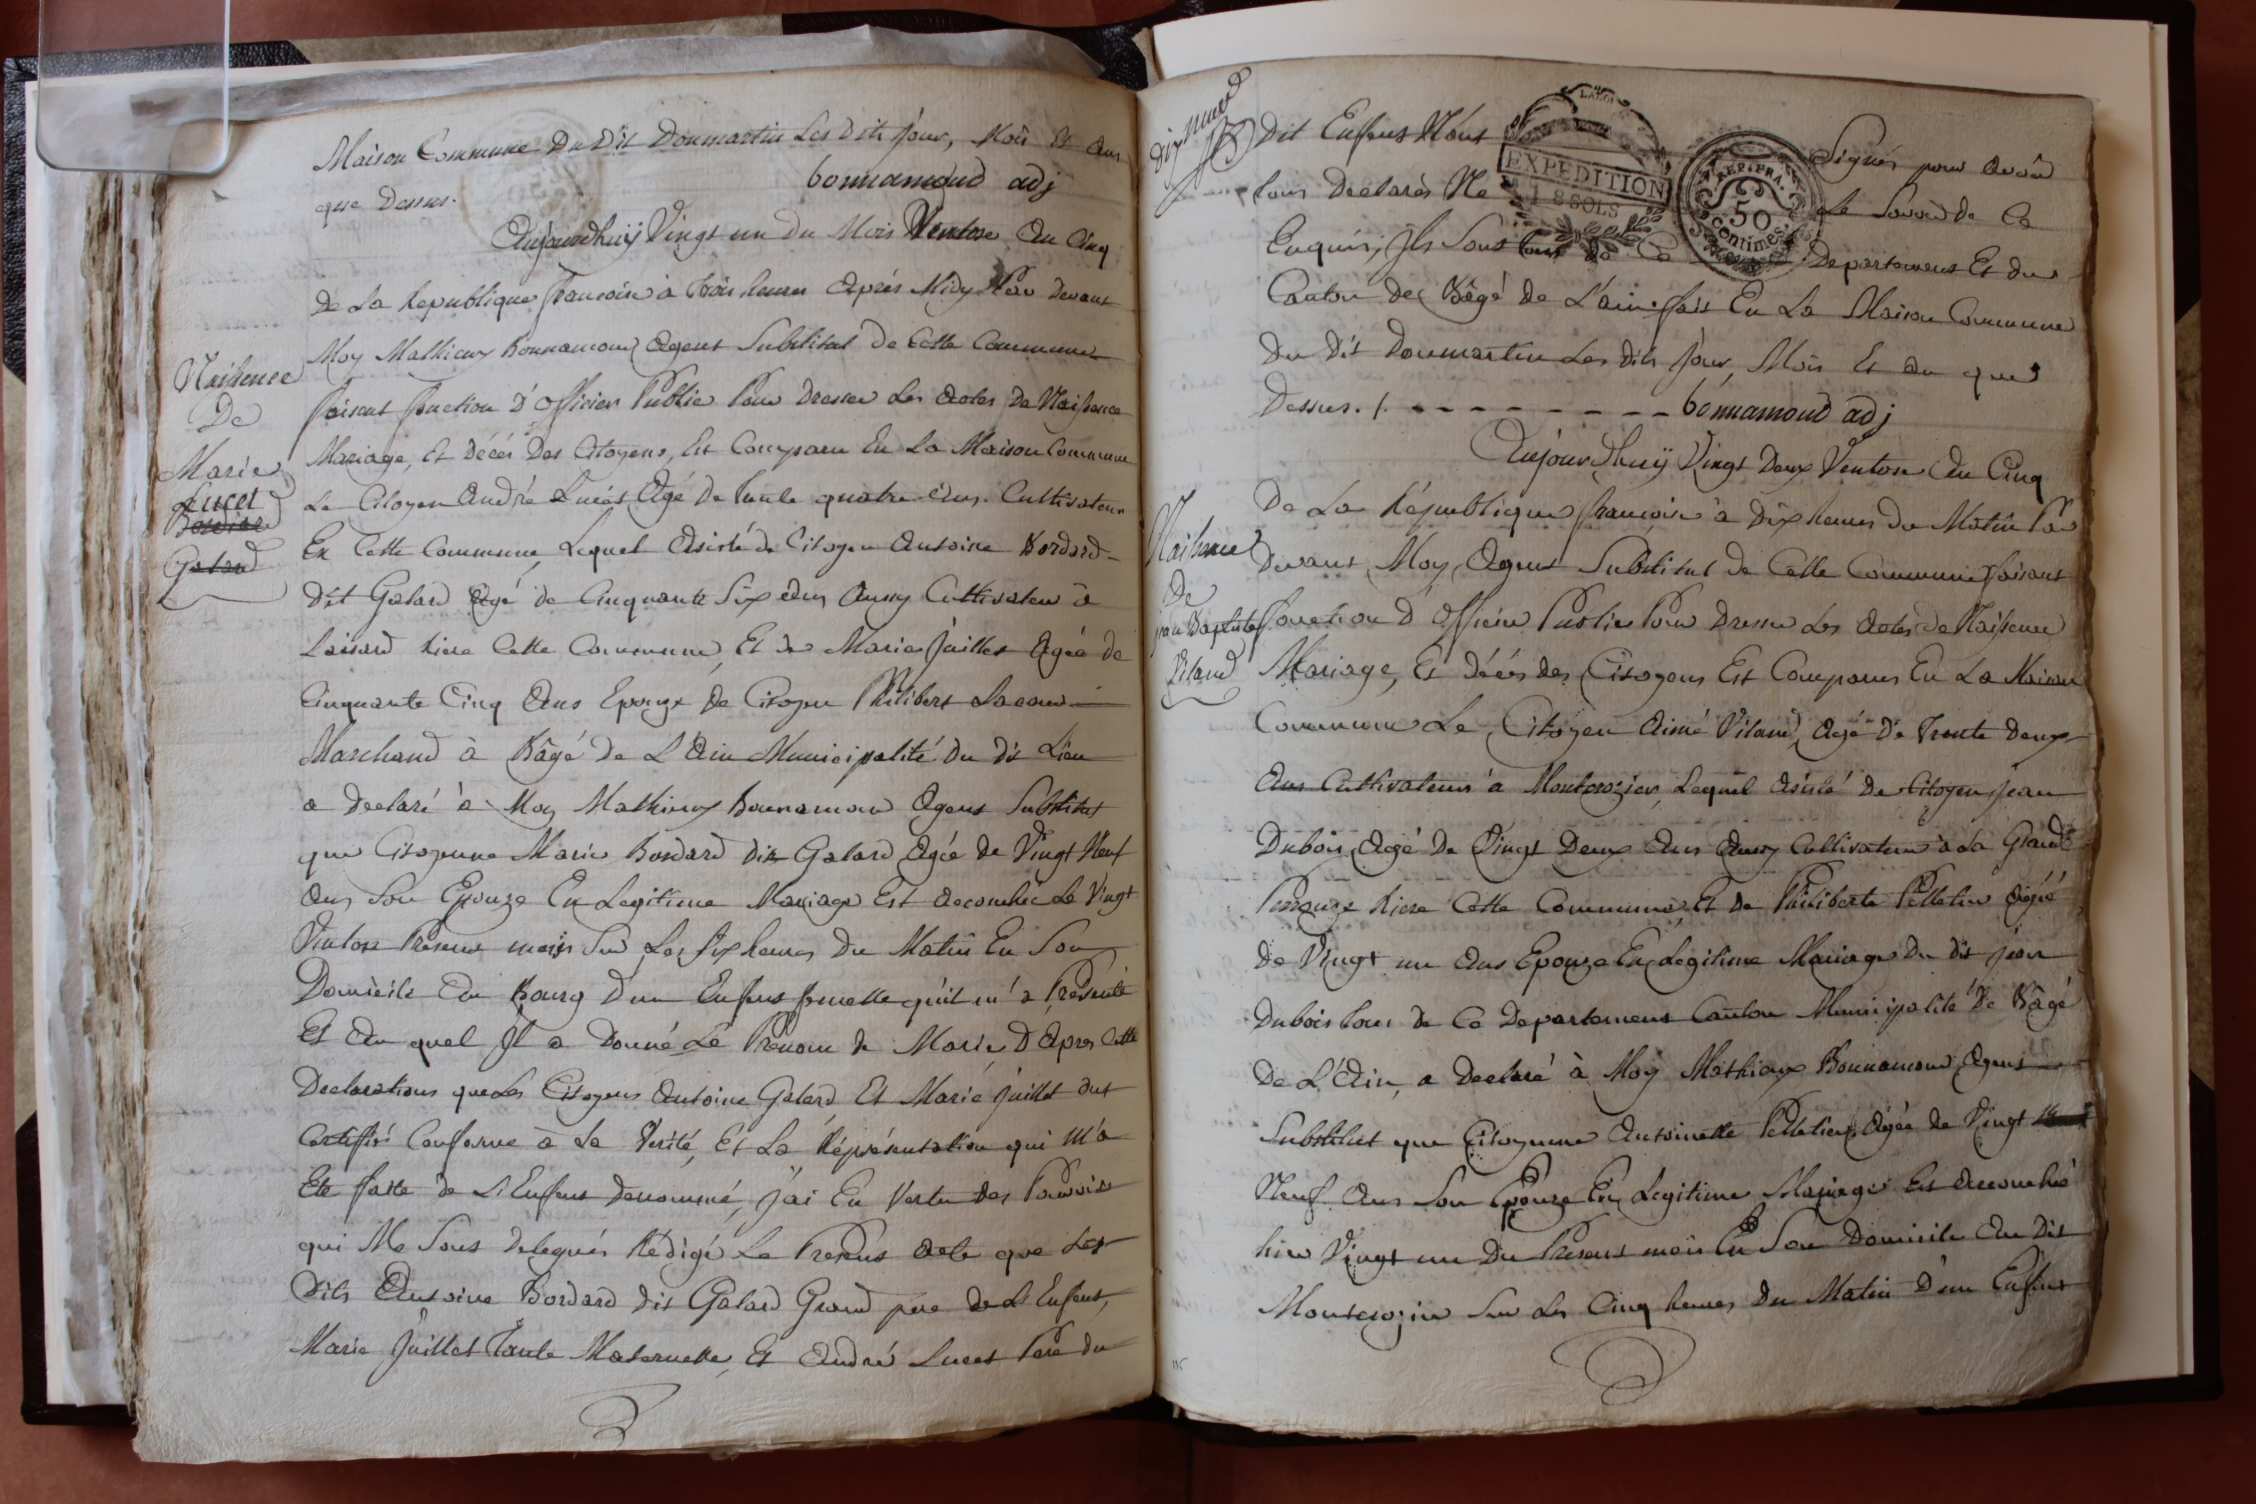 Maison Commune Du Dit Donmartin Les Dits Jour, Mois Et An
que Dessus. bonnamoud adj
Aujourdhuÿ Vingt un Du Mois Ventose An Cinq
De La Republique francoise à trois heures Après Midy Par devant
Moy Mathieux Bonnamour Agent Substitut De Cette Commune
faisant fonction D'Officier Public Pour Dresser Les Actes De Naissance
Mariage, Et Décés Des Citoyens, Est Comparu En La Maison Commune
Le Citoyen André Lucet Agé De trente quatre Ans Cultivateur
En Cette Commune, Lequel Assisté de Citoyen Antoine Bordard
Dit Galard Agé de Cinquante Six Ans Aussy Cultivateur à
Loisard riere Cette Commune, Et de Marie Juillet Agée de
Cinquante Cinq Ans Epouze De Citoyen Philibert
Marchand à Bâgé De L'Ain Municipalité Du dit Lieu
a Declaré à Moy Mathieux Bonnamour Agent Substitut
que Citoyenne Marie Bordard dit Galard Agée de Vingt Neuf
Ans Son Epouze En Legitime Mariage Est Accouchée Le Vingt
Ventose Present mois Sur Les Six heures Du Matin En Son
Domicile Au Bourg D'un Enfant femelle qu'il m'a Présenté
Et Au quel Il a Donné Le Prénom de Marie D'Apres Cette
Declarations que Les Citoyens Antoine Galard Et Marie Juillet ont
Certiffié Conforme à La Verité, Et La Réprésentation qui M'a
Eté faite de L'Enfant denommé, J'ai En Vertu Des Pouvoirs
qui Me Sont delegués Rédigé Le Présent Acte que Les
Dits Antoine Bordard dit Galard Grand pere de L'Enfant,
Marie Juillet Tante Maternelle, Et André Lucet Pere du
Naissence
De
Marie
Lucet
Bordard
Galard
Dix neuf
Dit Enfent N'ont Signés pour Avoir
tous Declarés Ne Le Savoir de Ce
Enquis, Ils Sont tous de Ce Departement Et du
Canton de Bâgé De L'ain fait En La Maison Commune
Du Dit Donmartin Les Dits Jour, Mois Et An que
Dessus. /. - - - - - - - - - bonnamoud adj
LA LOI
EXPEDITION
18 SOLS
REP. FRA.
50
Centimes
Aujourdhuÿ Vingt Deux Ventose An Cinq
De La République francoise à Dix heures Du Matin Par
Devant Moy, Agent Substitut de Cette Commune faisant
fonction D'Officier Public Pour Dresser Les Actes de Naissence
Mariage, Et Décés des Citoyens Est Comparus En La Maison
Commune Le Citoyen Aimé Viland, Agé De Trente Deux
Ans Cultivateur à Montcrozier, Lequel Assisté De Citoyen Jean
Dubois Agé De Vingt Deux Ans Aussy Cultivateur à La Grand
riere Cette Commune, Et De Philiberte Pelletier Agée
de Vingt un Ans Epouze En Legitime Mariage Du dit Jean
Dubois tous de Ce Departement Canton Municipalité De Bâgé
De L'Ain, a Declaré à Moy Mathieux Bonnamour Agent
Substitut que Citoyenne Antoinette Pelletier Agée de Vingt
Neuf Ans Son Epouze En Legitime Mariage Est Accouchée
hier Vingt un Du Present mois En Son Domicile Au Dit
Montcrozier Sur Les Cinq heures Du Matin D'un Enfent
Naissence
De
jean Baptiste
Viland